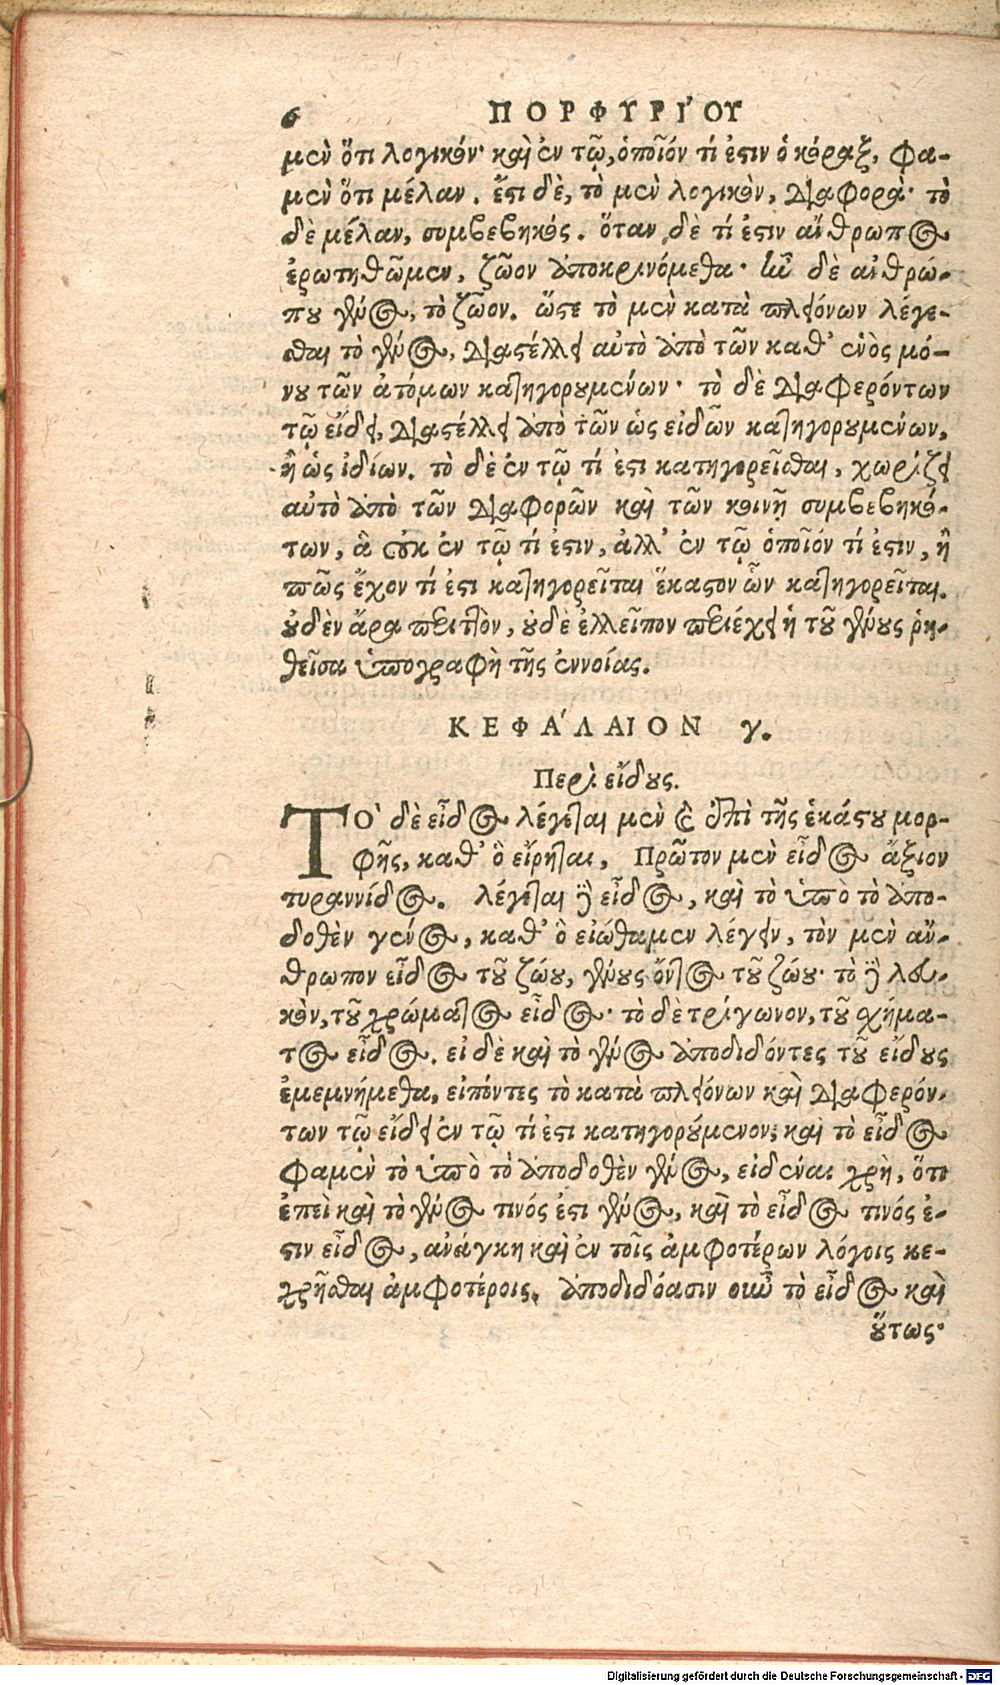 6 ΠΟΡΦΥΡΊΟΥ
μὲν ὅτι λογικόν· καὶ ἐν τῷ, ὁποῖόν τί ἐστιν ὁ κόραξ, φα-
μὲν ὅτι μέλαν. ἔστι δὲ, τὸ μὲν λογικὸν, διαφορὰ· τὸ
δὲ μέλαν, συμβεβηκός. ὅταν δὲ τί ἐστιν ἄνθρωπος
ἐρωτηθῶμεν, ζῶον ἀποκρινόμεθα· ἦν δὲ ἀνθρώ-
που γένος, τὸ ζῶον. ὥστε τὸ μὲν κατὰ πλειόνων λέγε-
σθαι τὸ γένος, διαστέλλει αὐτὸ ἀπὸ τῶν καθ' ἑνὸς μό-
νου τῶν ἀτόμων κατηγορουμένων· τὸ δὲ διαφερόντων
τῷ εἴδει, διαστέλλει ἀπὸ τῶν ὡς εἰδῶν κατηγορουμένων,
ἢ ὡς ἰδίων. τὸ δὲ ἐν τῷ τί ἐστι κατηγορεῖσθαι, χωρίζει
αὐτὸ ἀπὸ τῶν διαφορῶν καὶ τῶν κοινῇ συμβεβηκό-
των, ἃ οὐκ ἐν τῷ τί ἐστιν, ἀλλ' ἐν τῷ ὁποῖόν τί ἐστιν, ἢ
πῶς ἔχον τί ἐστι κατηγορεῖται ἕκαστον ὧν κατηγορεῖται.
οὐδὲν ἄρα περιττὸν, οὐδὲ ἐλλεῖπον περιέχει ἡ τοῦ γένους ῥη-
θεῖσα ὑπογραφὴ τῆς ἐννοίας.
ΚΕΦΆΛΑΙΟΝ γ.
Περὶ εἴδους.
ΤῸ δὲ εἶδος λέγεται μὲν καὶ ἐπὶ τῆς ἑκάστου μορ-
φῆς, καθ' ὃ εἴρηται, Πρῶτον μὲν εἶδος ἄξιον
τυραννίδος. λέγεται δὲ εἶδος, καὶ τὸ ὑπὸ τὸ ἀπο-
δοθὲν γένος, καθ' ὃ εἰώθαμεν λέγειν, τὸν μὲν ἄν-
θρωπον εἶδος τοῦ ζώου, γένους ὄντος τοῦ ζώου· τὸ δὲ λευ-
κὸν, τοῦ χρώματος εἶδος· τὸ δὲ τρίγωνον, τοῦ σχήμα-
τος εἶδος. εἰ δὲ καὶ τὸ γένος ἀποδιδόντες τοῦ εἴδους
ἐμεμνήμεθα, εἰπόντες τὸ κατὰ πλειόνων καὶ διαφερόν-
των τῷ εἴδει ἐν τῷ τί ἐστι κατηγορούμενον; καὶ τὸ εἶδος
φαμὲν τὸ ὑπὸ τὸ ἀποδοθὲν γένος, εἰδέναι χρὴ, ὅτι
ἐπεὶ καὶ τὸ γένος τινός ἐστι γένος, καὶ τὸ εἶδος τινός ἐ-
στιν εἶδος, ἀνάγκη καὶ ἐν τοῖς ἀμφοτέρων λόγοις κε-
χρῆσθαι ἀμφοτέροις. ἀποδιδόασιν οὖν τὸ εἶδος καὶ
οὕτως·
Digitalisierung gefördert durch die Deutsche Forschungsgemeinschaft - DFG